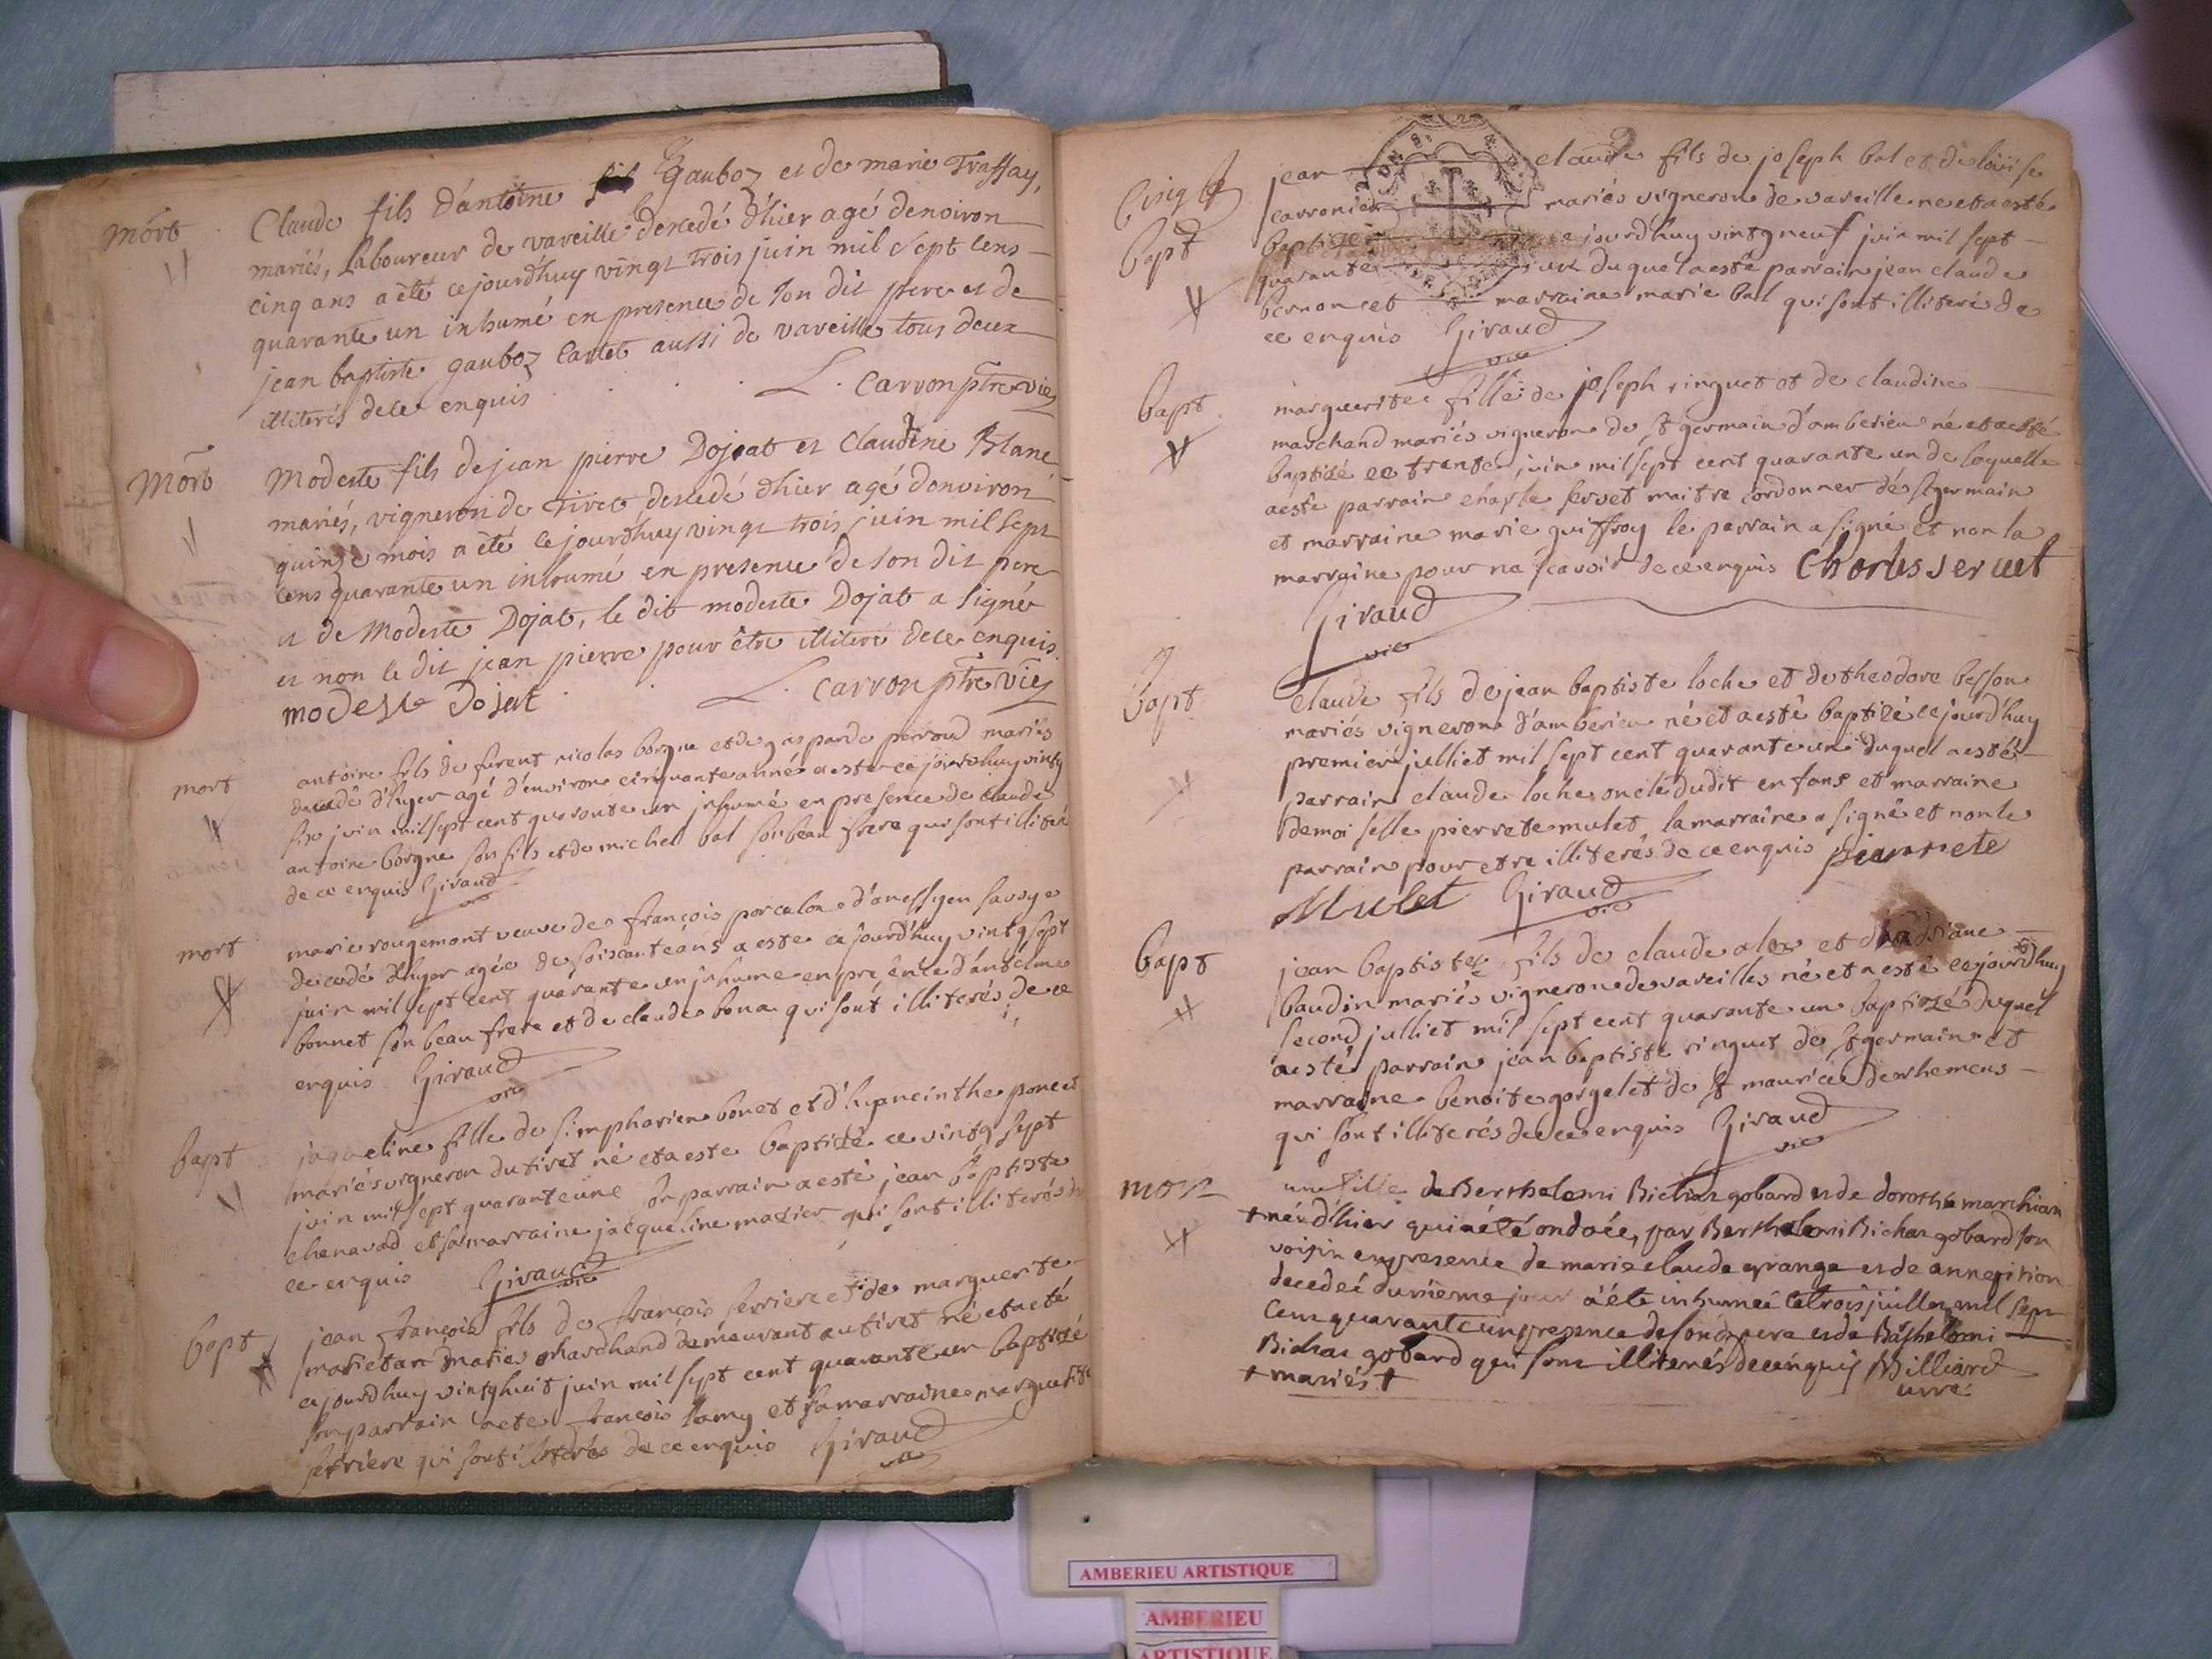 Mort
Claude fils d'antoine Gauboz et de marie Traffay,
mariés, laboureur de vareille decedé d'hier agé denviron
cinq ans a été cejourd'huy vingt trois juin mil sept cens
quarante un inhumé en presence de son dit pere et de
jean baptiste gauboz cartet aussi de vareille tous deux
illiterés de ce enquis L. Carron ptre vic
Mort
Modeste fils de jean pierre Dojat et Claudine Blanc
mariés, vigneron de Tiret decedé d'hier agé denviron
quinze mois a été cejourd'huy vingt trois juin mil sept
cens quarante un inhumé en presence de son dit pere
et de Modeste Dojat, le dit modeste Dojat a signé
et non le dit jean pierre pour être illiteré de ce enquis
modeste Dojat L. Carron ptre vic
mort
antoine fils de furent nicolas borgne et de gasparde perroud mariés
decedé d'hyer agé d'environ cinquante année a esté ce jourdhuy vintg
six juin mil sept cent quarante un inhumé en presence de claude
antoine borgne son fils et de michel bal son beau frere qui sont illiteré
de ce enquis Giraud
vic
mort
marie rougemont veuve de françois porcelon d'anessy en savoye
decedé d'hyer agée de soiscante ans a esté ce jourd'huy vintg sept
juin mil sept cent quarante un inhume en presence d'antelme
bonnet son beau frere et de claude bona qui sont illiterés de ce
enquis Giraud
vic
bapt
jaqueline fille de simphorien bonet et d'hyaneinthe poncet
mariés vigneron du tiret né et a esté baptizé ce vintg sept
juin mil sept quarante une son parrain a esté jean baptiste
chenavad et sa marraine jacqueline mazier qui sont illiterés de
ce enquis Giraud
vic
bapt
jean françois fils de françois ferriere et de marguerite
mariétan mariés marchand demeurant au tiret né et a eté
ce jourdhuy vintg huit juin mil sept cent quarante un baptizé
son parrain a ete françois lamy et sa marraine marguerite
ferriere qui sont illiterés de ce enquis Giraud
vic
bapt
jean claude fils de joseph bal et de loüise
carronier mariés vigneron de vareille ne et a esté
baptizé ce jourd'huy vintg neuf juin mil sept
quarante un duquel a esté parrain jean claude
bernon et marraine marie bal qui sont illiteré de
ce enquis Giraud
vic
bapt
marguerite fille de joseph ringuet et de claudine
marchand mariés vigneron de st germain d'amberieu né et a esté
baptizé ce trente juin mil sept cent quarante un de laquelle
a esté parrain charle servet maitre cordonner de st germain
et marraine marie guiffray le parrain a signé et non la
marraine pour ne sçavoir de ce enquis Charles servet
Giraud
vic
bapt
claude fils de jean baptiste loche et de theodore besson
mariés vigneron d'amberieu né et a esté baptizé ce jourd'huy
premier julliet mil sept cent quarante un duquel a esté
parrain claude loche oncle dudit enfans et marraine
demoiselle pierrete mulet, la marraine a signé et non le
parrain pour etre illiteres de ce enquis pierrete
Mulet Giraud
vic
bapt
jean baptiste fils de claude alex et
baudin mariés vigneron de vareilles né et a esté ce jourdhuy
second julliet mil sept cent quarante un baptizé duquel
a esté parrain jean baptiste ringuet de st germain et
marraine benoite gorgelet de st maurice de rhemens
qui sont illiterés de ce enquis Giraud
vic
mort
une fille de Berthelemi Bichat gobard et de dorothé marchian
+ née d'hier qui a été ondoée, par Berthelemi Bichat gobard son
voisin en presence de marie claude grange et de anne sition
decedeé du même jour a été inhumeé le trois juillet mil sept
cent quarante un presence de son d. pere et de Barthelemi
Bichat gobard qui sont illiterés de ce enquis Billiard
+ mariés + curé
AMBERIEU ARTISTIQUE
AMBERIEU
ARTISTIQUE